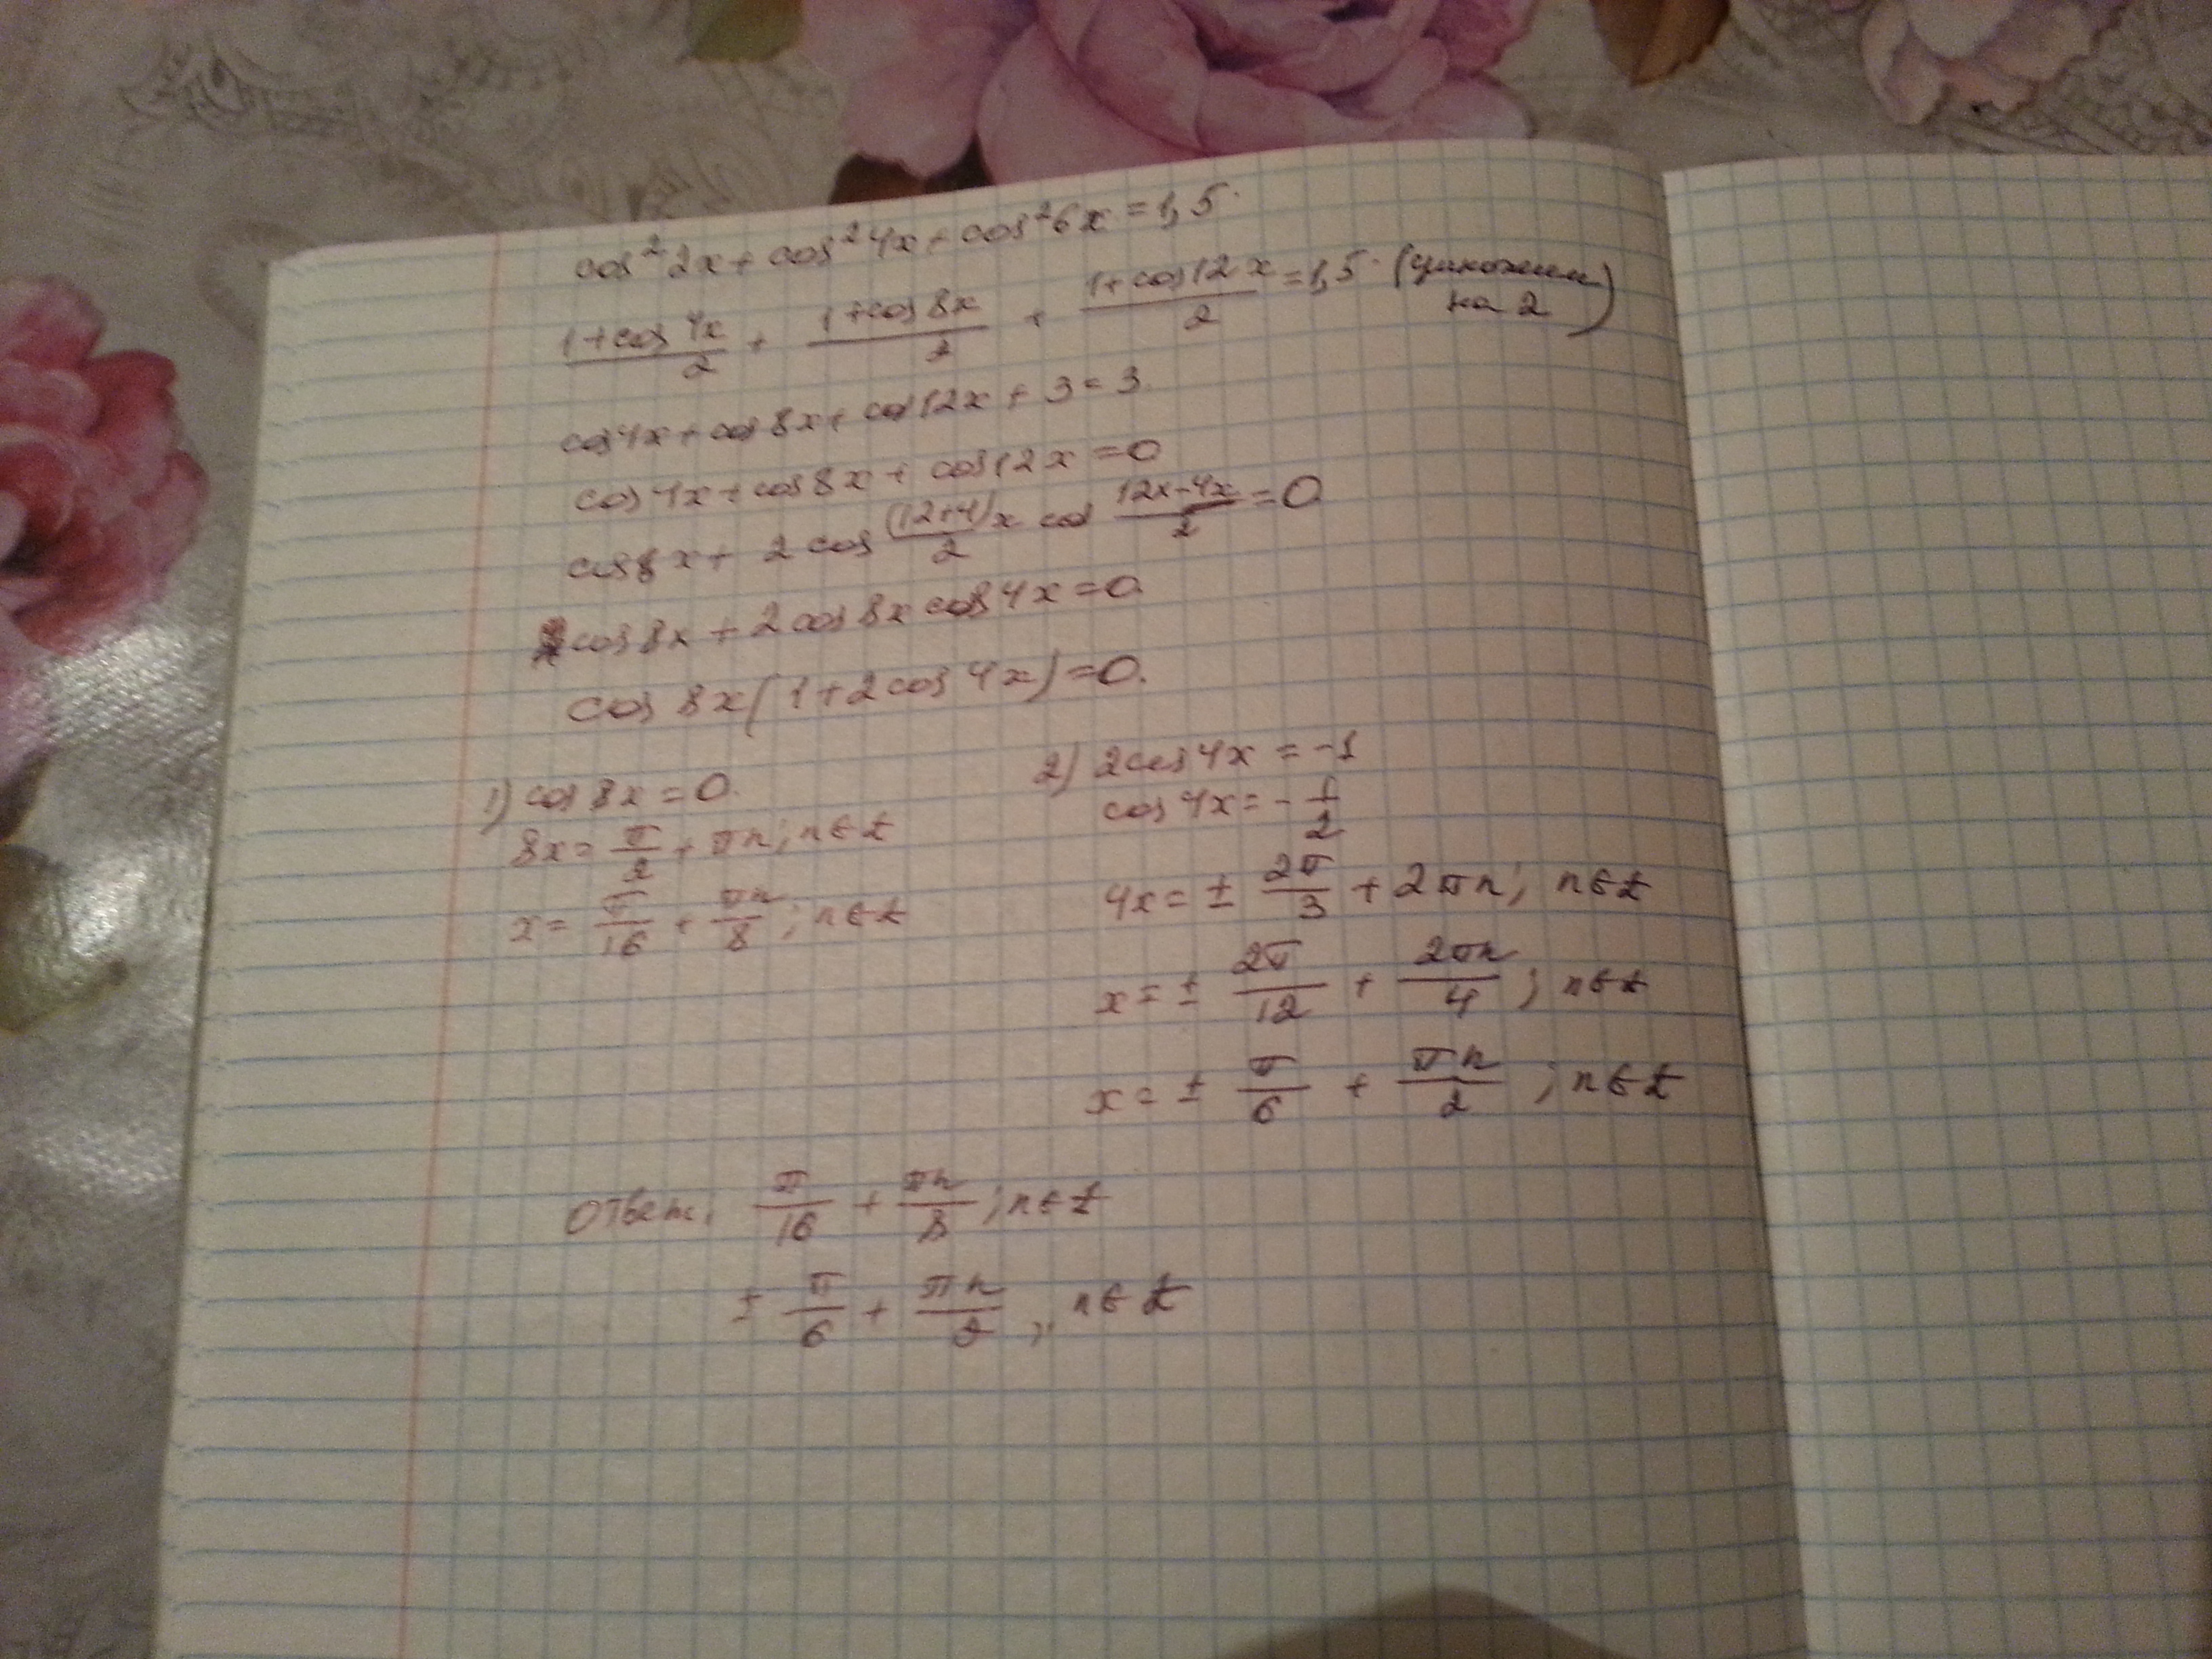 cos²2x + cos²4x + cos²6x = 1,5.
(1+cos 4x)/2 + (1+cos 8x)/2 + (1+cos 12x)/2 = 1,5. (умножим на 2)
cos4x + cos 8x + cos12x + 3 = 3.
cos 4x + cos 8x + cos12x = 0
cos8x + 2 cos (12+4)x/2 cos (12x-4x)/2 = 0
cos 8x + 2cos 8x cos 4x = 0.
cos 8x (1 + 2cos 4x) = 0.
1) cos 8x = 0.
8x = π/2 + πn; n∈Z
x = π/16 + πn/8; n∈Z
2) 2cos 4x = -1
cos 4x = -1/2
4x = ± 2π/3 + 2πn; n∈Z
x = ± 2π/12 + 2πn/4; n∈Z
x = ± π/6 + πn/2; n∈Z
Ответ: π/16 + πn/8; n∈Z
± π/6 + πn/2; n∈Z